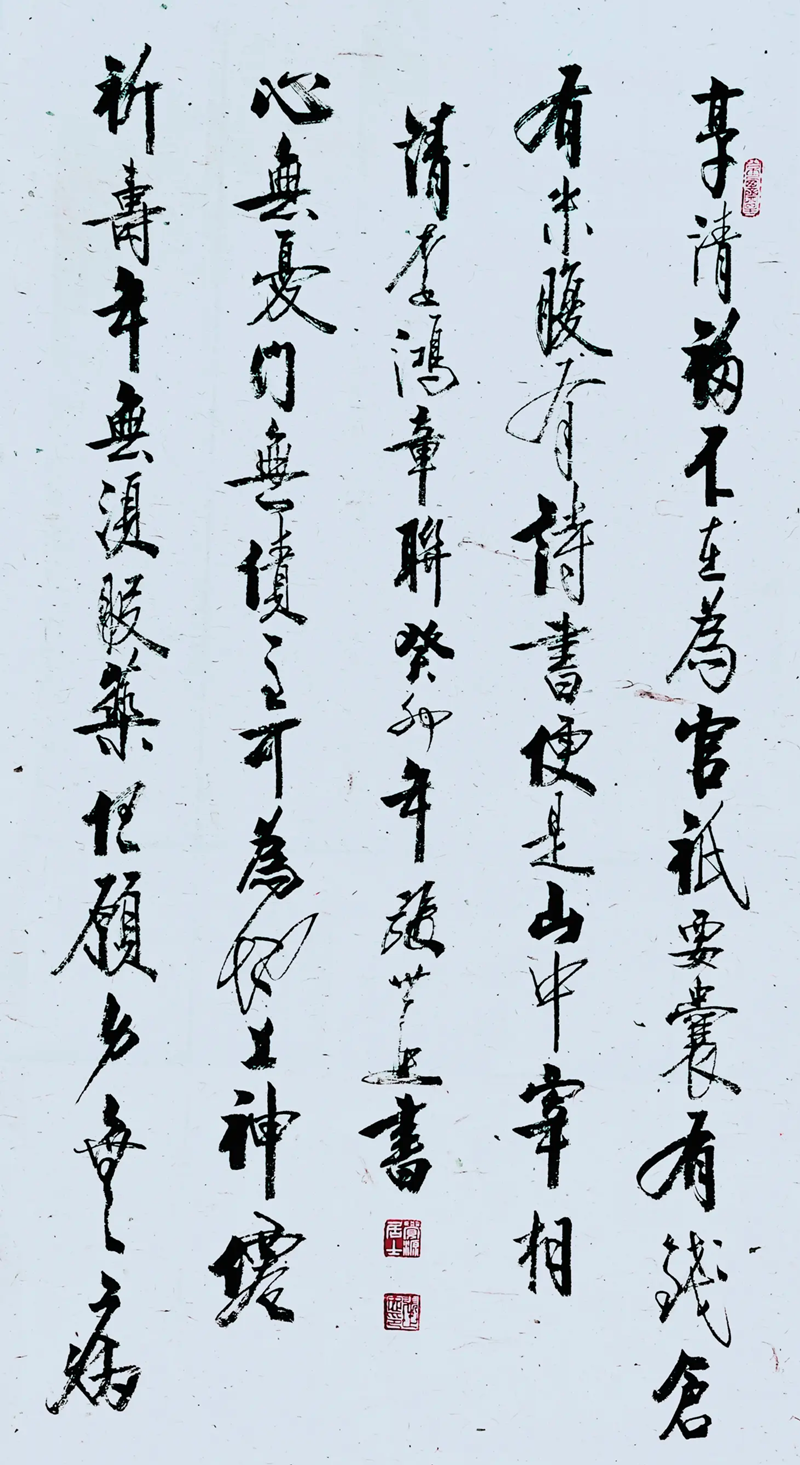 享清福不在為官祇要囊有錢倉
有米腹有詩書便是山中宰相
祈壽年無須服藥但願身無病
心無憂門無債主可為地上神僊
清李鴻章聯癸卯年張世書
居士